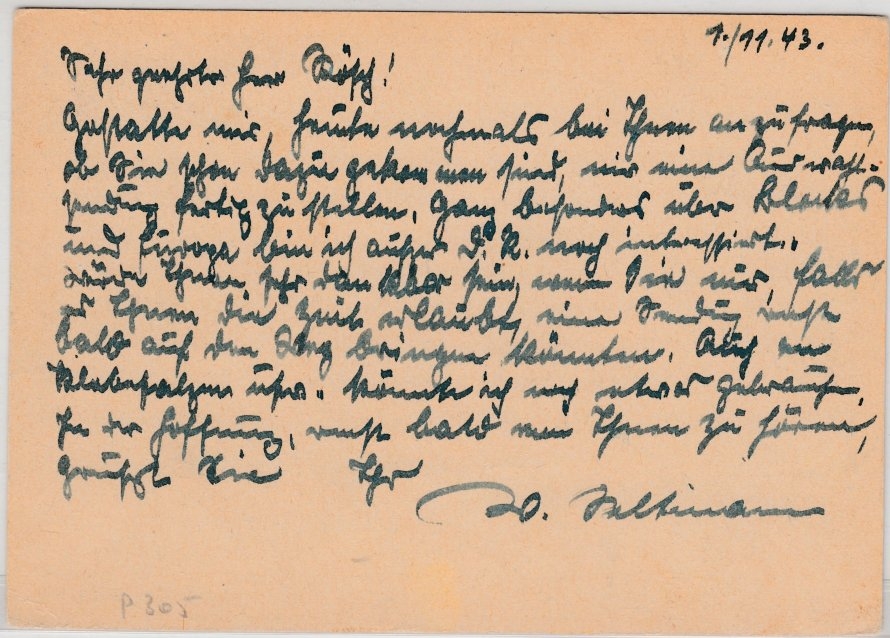 1./11.43.
Sehr geehrter Herr Rösch!
Gestatte mir, heute nochmals bei Ihnen anzufragen,
ob Sie schon dazu gekommen sind, mir eine Auswahl-
sendung fertig zu stellen. Ganz besonders über Blocks
und Europa bin ich außer D. R. noch interessiert.
würde Ihnen sehr dankbar sein, wenn Sie mir, falls
es Ihnen die Zeit erlaubt, eine Sendung recht
bald auf den Weg bringen könnten. Auch an
Klebefalzen usw. könnte ich noch etwas gebrauchen.
In der Hoffnung, recht bald von Ihnen zu hören,
grüßt Sie Ihr
W.
P 305